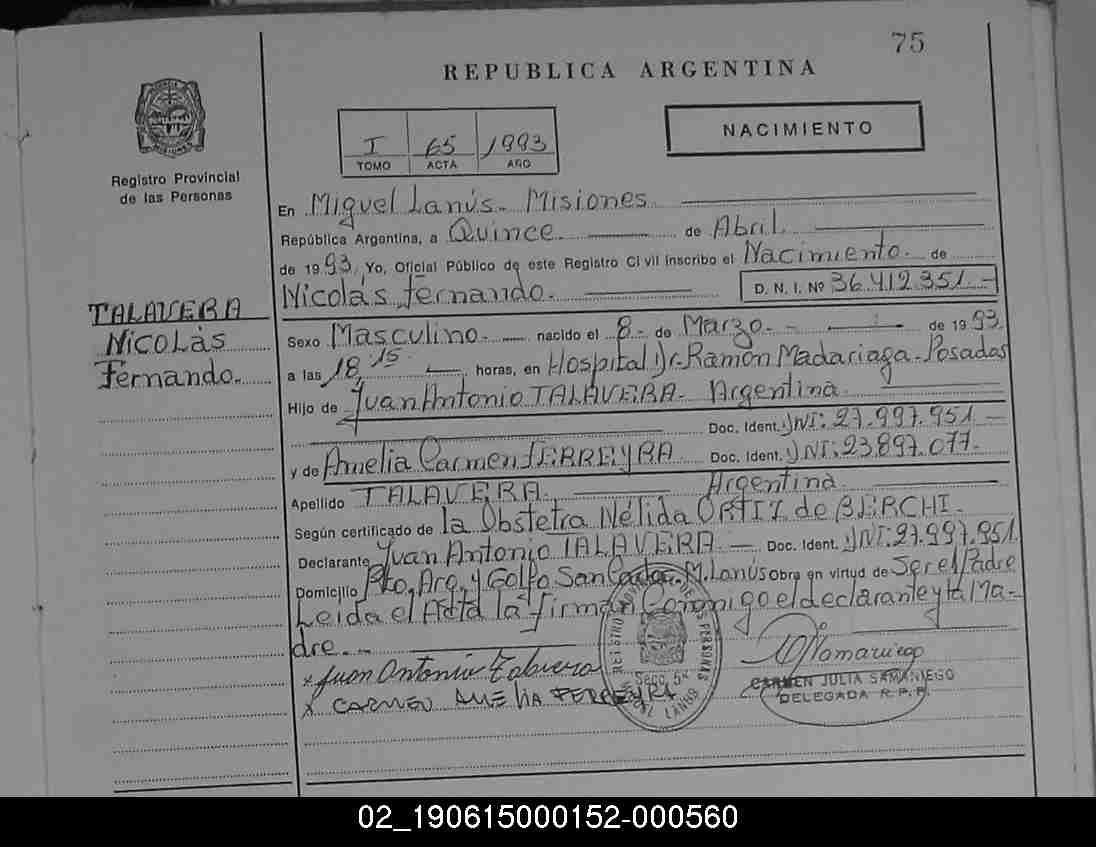 75
REPUBLICA ARGENTINA
I 65 1993
TOMO ACTA AÑO
NACIMIENTO
Registro Provincial
de las Personas
En Miguel Lanús. Misiones
República Argentina, a Quince. de Abril
de 1993, Yo, Oficial Público de este Registro Civil inscribo el Nacimiento. de
Nicolás Fernando. D. N. I. Nº 36.412.351.-
TALAVERA
Nicolás
Fernando.
Sexo Masculino. nacido el 8- de Marzo. - de 1993
a las 18,15 horas, en Hospital Dr. Ramón Madariaga - Posadas
Hijo de Juan Antonio TALAVERA. Argentina.
Doc. Ident. DNI: 27.997.951.-
y de Amelia Carmen FERREYRA Doc. Ident. DNI: 23.897.077.
Apellido TALAVERA. Argentina.
Según certificado de la Obstetra Nélida ORTIZ de BERCHI.
Declarante Juan Antonio TALAVERA. Doc. Ident. DNI: 27.997.951.
Domicilio Pto. Arg. y Golfo San M. Lanús Obra en virtud de Ser el Padre
Leida el Acta la firman Conmigo el declarante y la Ma-
dre.-
x Juan Antonio Talavera
x CARMEN AMELIA FERREYRA
REGISTRO PROVINCIAL DE LAS PERSONAS
Secc. 5ª
MIGUEL LANUS
CARMEN JULIA SAMANIEGO
DELEGADA R.P.P.
02_190615000152-000560